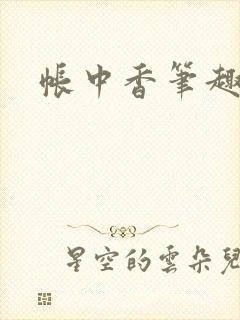 帳中香筆趣
星空的雲朵兒